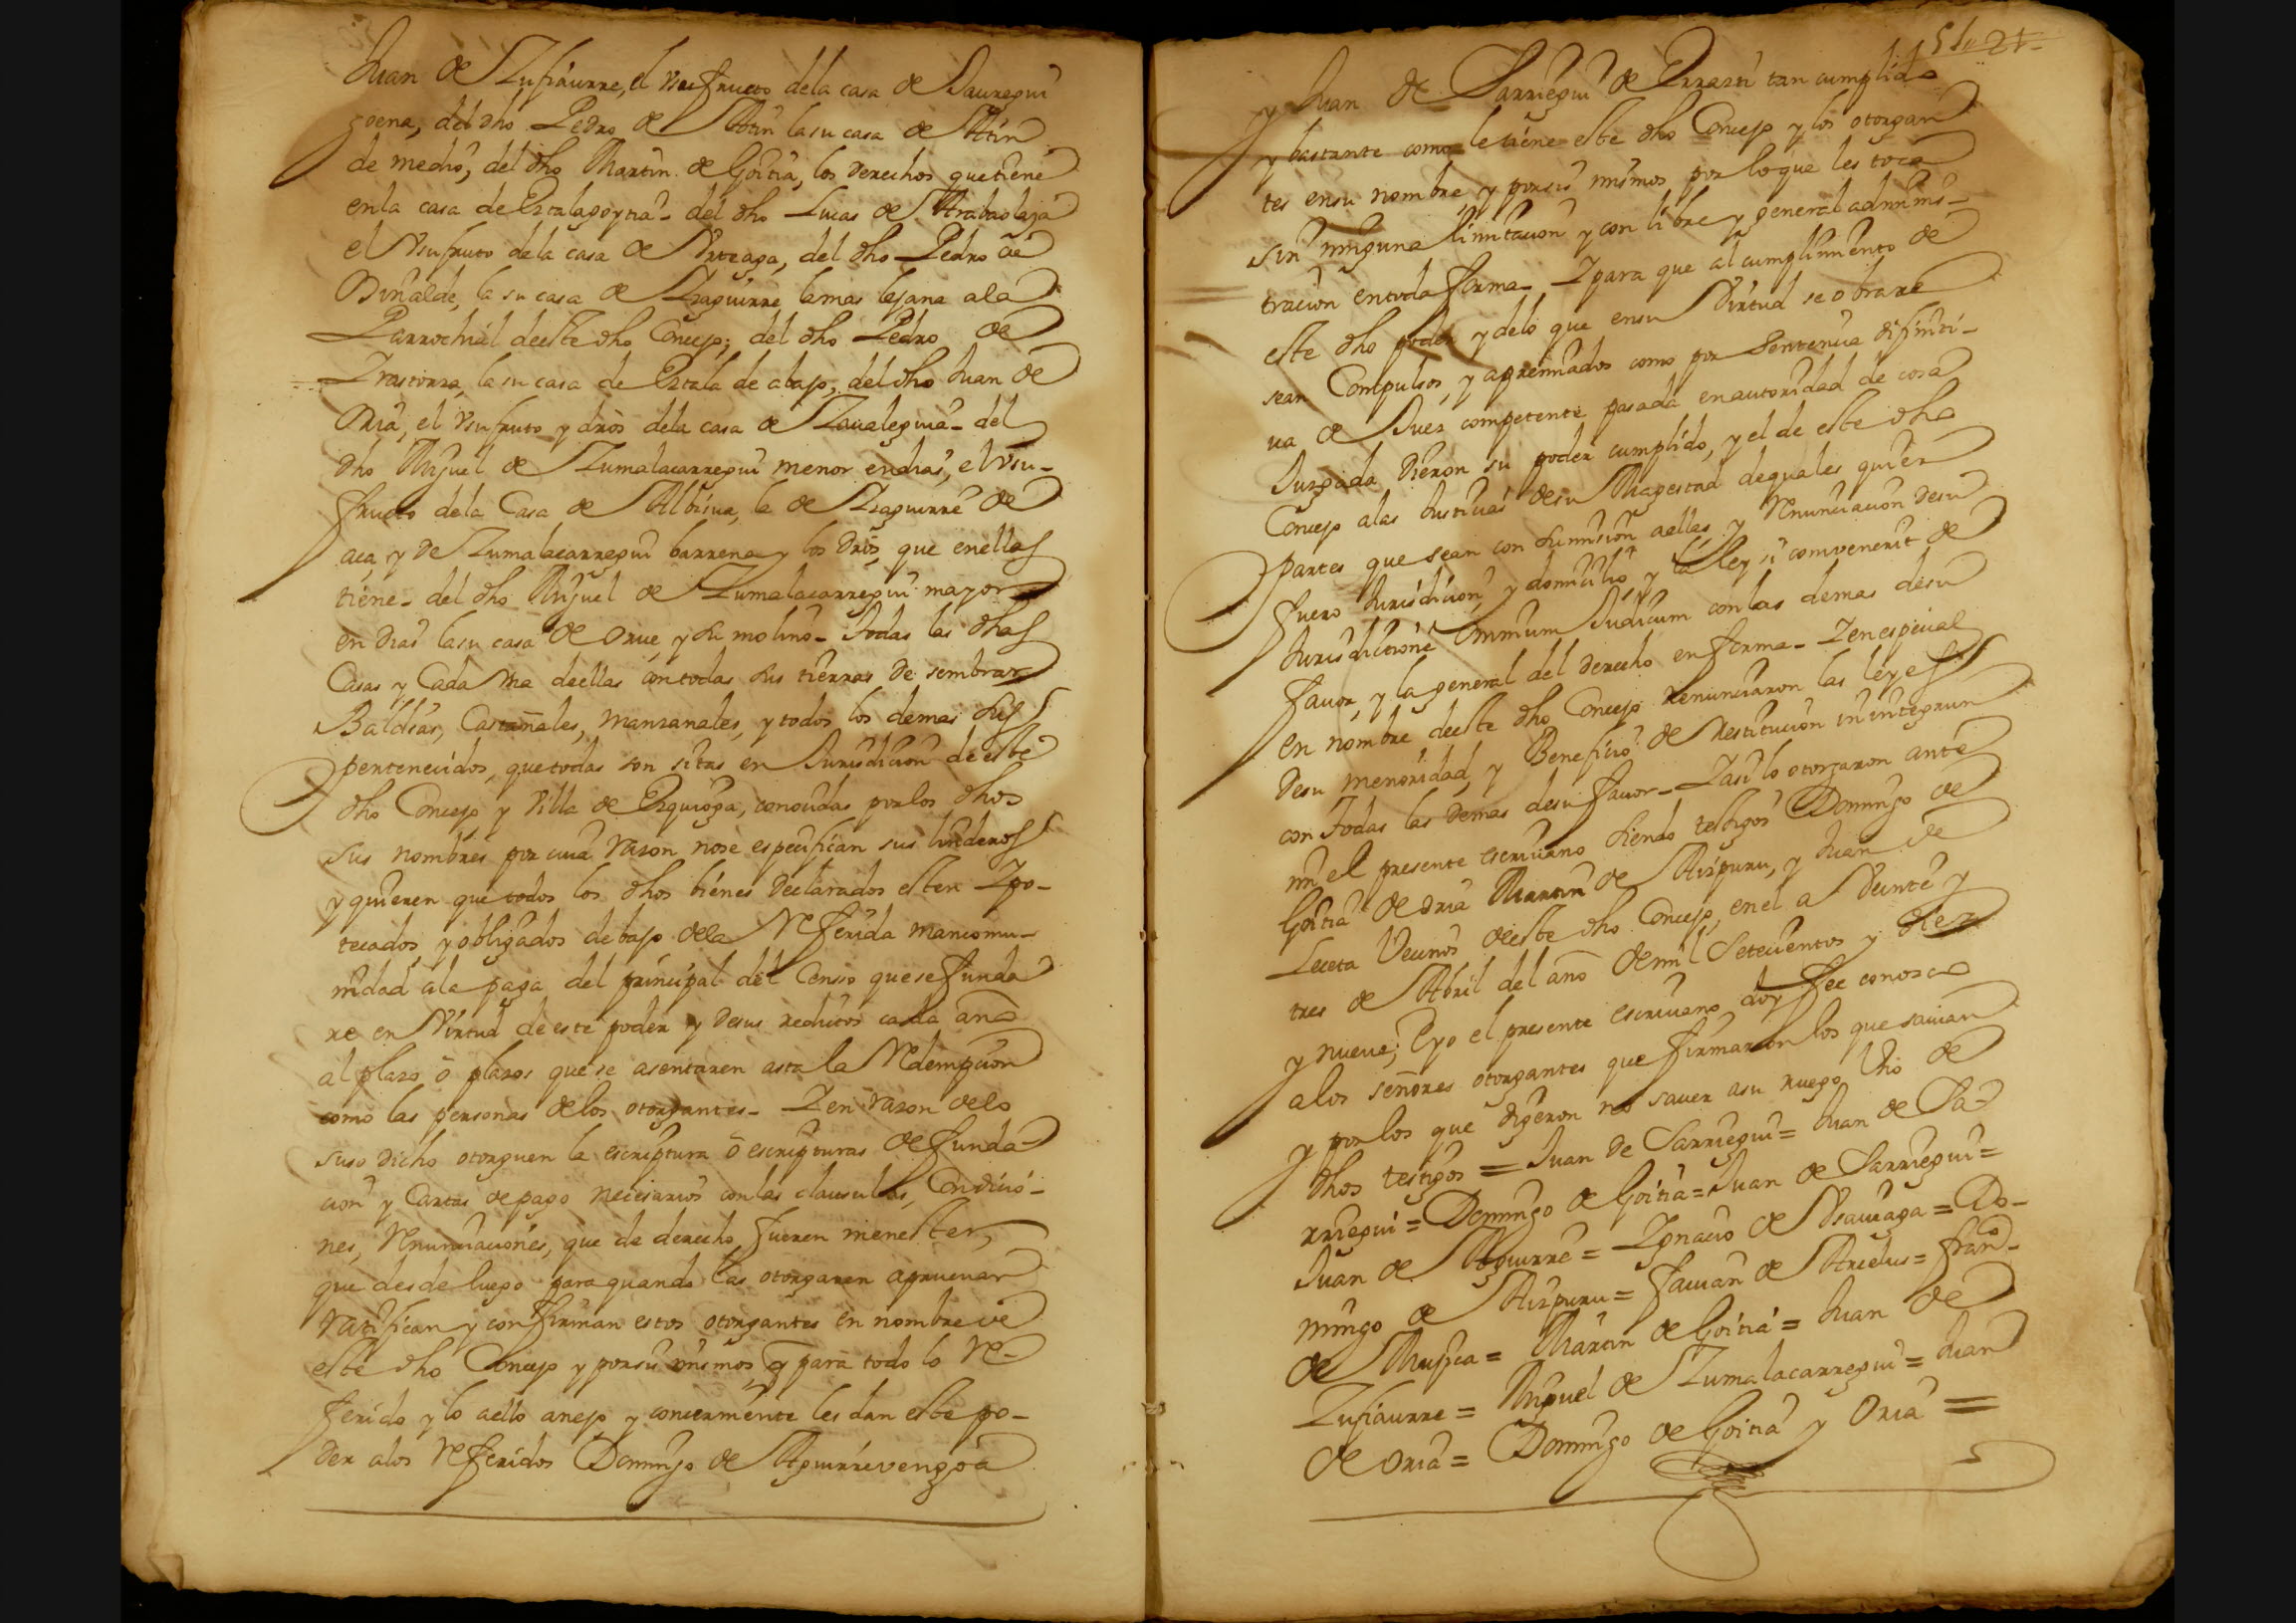 Juan de Zufiaurre, el vsufructo dela casa de Jauregui
goena, del dho Pedro de Atin la su casa de Atin
de medio, del dho Martin de Goitia, los derechos que tiene
enla casa de Ezalagoytia - del dho Lucas de Arabaolaja
el Vsufruto dela casa de Vrteaga, del dho Pedro de
Oinalde, la su casa de Izaguirre lamas lejana ala
Parrochial deeste dho Concejo; del dho Pedro de
la su casa de Ezala de abajo, del dho Juan de
Oria, el vsufruto y dros dela casa de Zaualeguia - del
dho Miguel de Zumalacarregui menor en dias, el vsu-
fructo dela Casa de Albisua, la de Izaguirre de
aca, y de Zumalacarregui barrena y los dros, que enellas
tiene - del dho Miguel de Zumalacarregui mayor
en dias lasu casa de Orue, y su molino - Todas las dhas
Casas y Cada Vna deellas con todas sus tierras de sembrar
Baldias, Castañales, manzanales, y todos los demas sus
pertenecidos, que todas son sitas en Jurisdicion de este
dho Concejo y Villa de Ezquioga, conocidas por los dhos
sus nombres por cuia razon nose especifican sus linderos
y quieren que todos los dhos bienes declarados esten Ypo-
tecados, y obligados debajo dela Referida mancomu-
nidad ala paga del principal del Censo que se funda
re en Virtud de este poder y desus reditos cada año
al plazo ô plazos que se asentaren asta la Redempcion
como las personas delos otorgantes - Y en razon delo
suso dicho otorguen la escriptura ô escripturas de funda-
cion y Cartas de pago necesarios con las clausulas, Condicio-
nes, Renunciaciones, que de derecho fueren menester,
que desde luego para quando las otorgaren aprueuan
Ratifican y confirman estos otorgantes en nombre de
este dho Concejo y por si mismos, y para todo lo Re-
ferido y lo aello anejo y concerniente les dan este po-
der alos Referidos Domingo de Aguirrevengoa
21-
y Juan de Sarriegui de Errazti tan cumplido
y bastante como le tiene este dho Concejo y los otorgan
tes ensu nombre, y porsi mismos por loque les toca
sin ninguna limitacion y con libre y general adminis-
tracion entoda forma - Y para que al cumplimiento de
este dho poder y delo que ensu Virtud se obrare
sean Compulsos, y apremiados como por sentencia difiniti-
ua de Juez competente pasada en autoridad de cosa
Juzgada dieron su poder cumplido, y el de este dho
Concejo alas Justicias desu Magestad dequales quier
partes que sean con sumision aellas, y Renunciacion desu
fuero Jurisdicion, y domicilio, y la Ley si comvenerit de
Jurisdictione omnium Judicum con las demas desu
fauor, y la general del derecho en forma - Y en especial
en nombre deeste dho Concejo renunciaron las leyes
desu menoridad, y Beneficio de Restitucion in integrun
con Todas las demas desu fauor - Y asi lo otorgaron ante
mi el presente escriuano siendo testigos Domingo de
Goitia de Oria Martin de Aizpuru, y Juan de
Leceta Vecinos deeste dho Concejo, en el a Veinte y
tres de Abril del año de mil Setecientos y diez
y nueue; Eyo el presente escriuano doy fee conozco
alos señores otorgantes que firmaron los que sauian
y por los que digeron no sauer asu ruego Vno de
dhos testigos = Juan de Sarriegui = Juan de Sa-
rriegui = Domingo de Goitia = Juan de Sarriegui =
Juan de Aguirre = Ygnacio de Vsauiaga = Do-
mingo de Aizpuru = Fauian de Aredus = franco
de Mujica = Martin de Goitia = Juan de
Zufiaurre = Miguel de Zumalacarregui = Juan
de Oria = Domingo de Goitia y Oria =